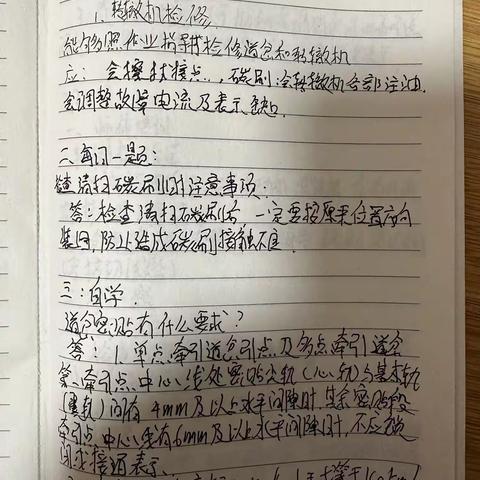 1、转辙机检修
能够按照作业指导书检修道岔和转辙机
应：会擦拭接点、碳刷；会转辙机各部注油.
会调整故障电流及表示缺口.
二、每日一题：
检查清扫碳刷时注意事项.
答：检查清扫碳刷后 一定要按原来位置方向
装回,防止造成碳刷接触不良.
三：自学.
道岔密贴有什么要求？
答：1.单点牵引道岔牵引点及多点牵引道岔
第一牵引点中心线处密贴尖轨(心轨)与基本轨
(翼轨)间有4mm及以上水平间隙时,其余密贴段
牵引点中心线有6mm及以上水平间隙时,不应锁
闭或接通表示.